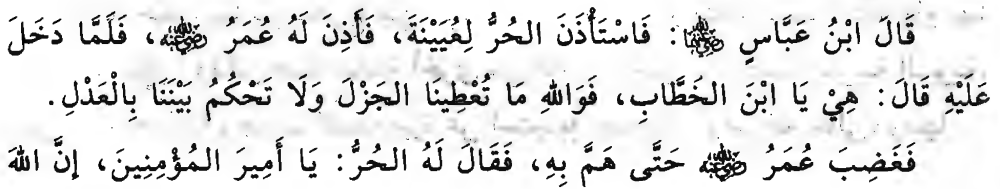 قَالَ ابْنُ عَبَّاسٍ رضي الله عنهما: فَاسْتَأْذَنَ الحُرُّ لِعُيَيْنَةَ، فَأَذِنَ لَهُ عُمَرُ رضي الله عنه، فَلَمَّا دَخَلَ
عَلَيْهِ قَالَ: هِيْ يَا ابْنَ الخَطَّابِ، فَوَاللهِ مَا تُعْطِينَا الجَزْلَ وَلَا تَحْكُمُ بَيْنَنَا بِالْعَدْلِ.
فَغَضِبَ عُمَرُ رضي الله عنه حَتَّى هَمَّ بِهِ، فَقَالَ لَهُ الحُرُّ: يَا أَمِيرَ المُؤْمِنِينَ، إِنَّ اللهَ